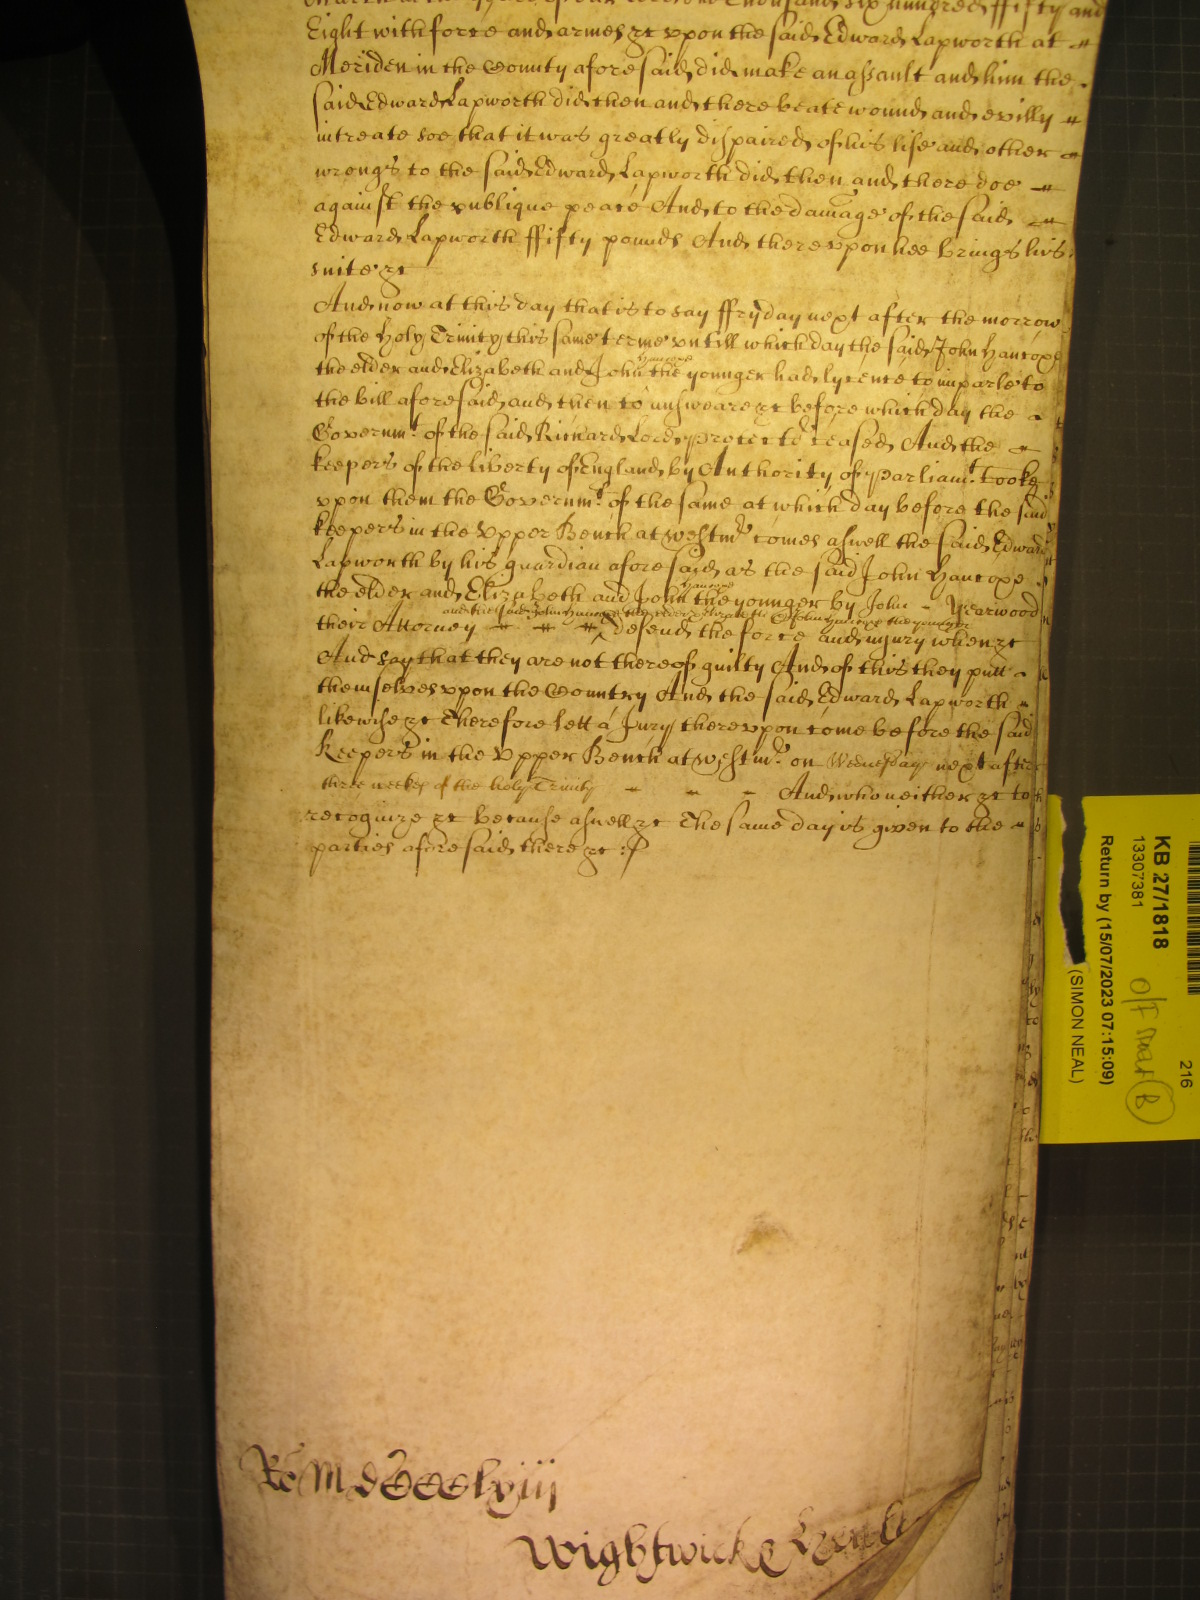 Eight with force and armes &c vpon the said Edward Lapworth at
Meriden in the County aforesaid did make an assault and him the
said Edward Lapworth did then and there beate wound and evilly
intreate soe that it was greatly dispaired of his life and other
wrongs to the said Edward Lapworth did then and there doe
against the publique peace And to the damage of the said
Edward Lapworth ffifty pounds And therevpon hee brings his
suite &c
And now at this day that is to say ffryday next after the morrow
of the Holy Trinity this same terme vntill which day the said John Hancoxe
the elder and Elizabeth and John Hancoxe the younger had lycence to imparle to
the bill aforesaid and then to answeare &c before which day the
Governmt. of the said Richard Lord Protectr ceased And the
keepers of the liberty of England by Authority of Parliamt. Tooke
vpon them the Governmt. of the same at which day before the said
keepers in the Vpper Bench at Westmr. comes aswell the said Edward
Lapworth by his guardian aforesaid as the said John Hancoxe
the elder and Elizabeth and John Hancoxe the younger by John Yearwood
and the said John Hancoxe the elder Elizabeth & John Hancoxe the younger
their Attorney defend the force and injury when &c
And say that they are not thereof guilty And of this they putt
themselves vpon the Country And the said Edward Lapworth
likewise &c Therefore lett a Jury therevpon come before the said
Keepers in the Vpper Bench at Westmr. on Wednesday next after
three weekes of the holy Trinity And who neither &c to
recognize &c because aswell &c The same day is given to the
parties aforesaid there &c
Ro MdCCCxlviij
Wightwick &
KB 27/1818
13307381
Return by (15/07/2023 07:15:09)
(SIMON NEAL)
216
B